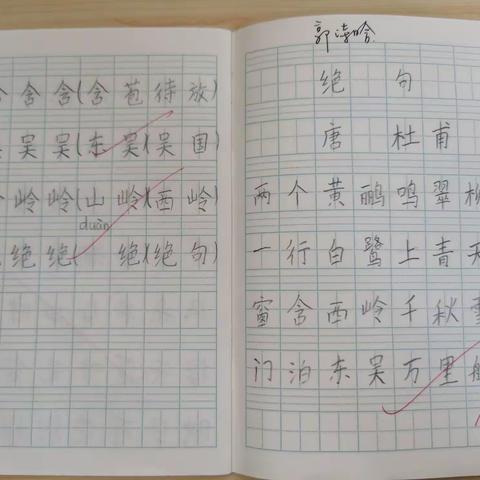 含含(含苞待放)
吴吴(东吴)(吴国)
岭岭(山岭)(西岭)
duàn
绝绝(绝)(绝句)
郭
绝句
唐 杜甫
两个黄鹂鸣翠柳
一行白鹭上青天
窗含西岭千秋雪
门泊东吴万里船